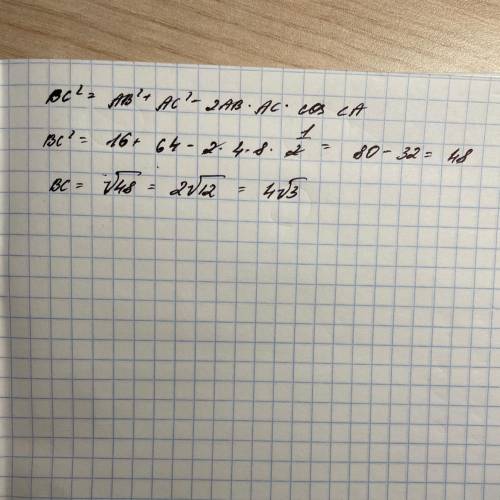 BC² = AB² + AC² - 2AB · AC · cos ∠A
BC² = 16 + 64 - 2 · 4 · 8 · 1/2 = 80 - 32 = 48
BC = √48 = 2√12 = 4√3